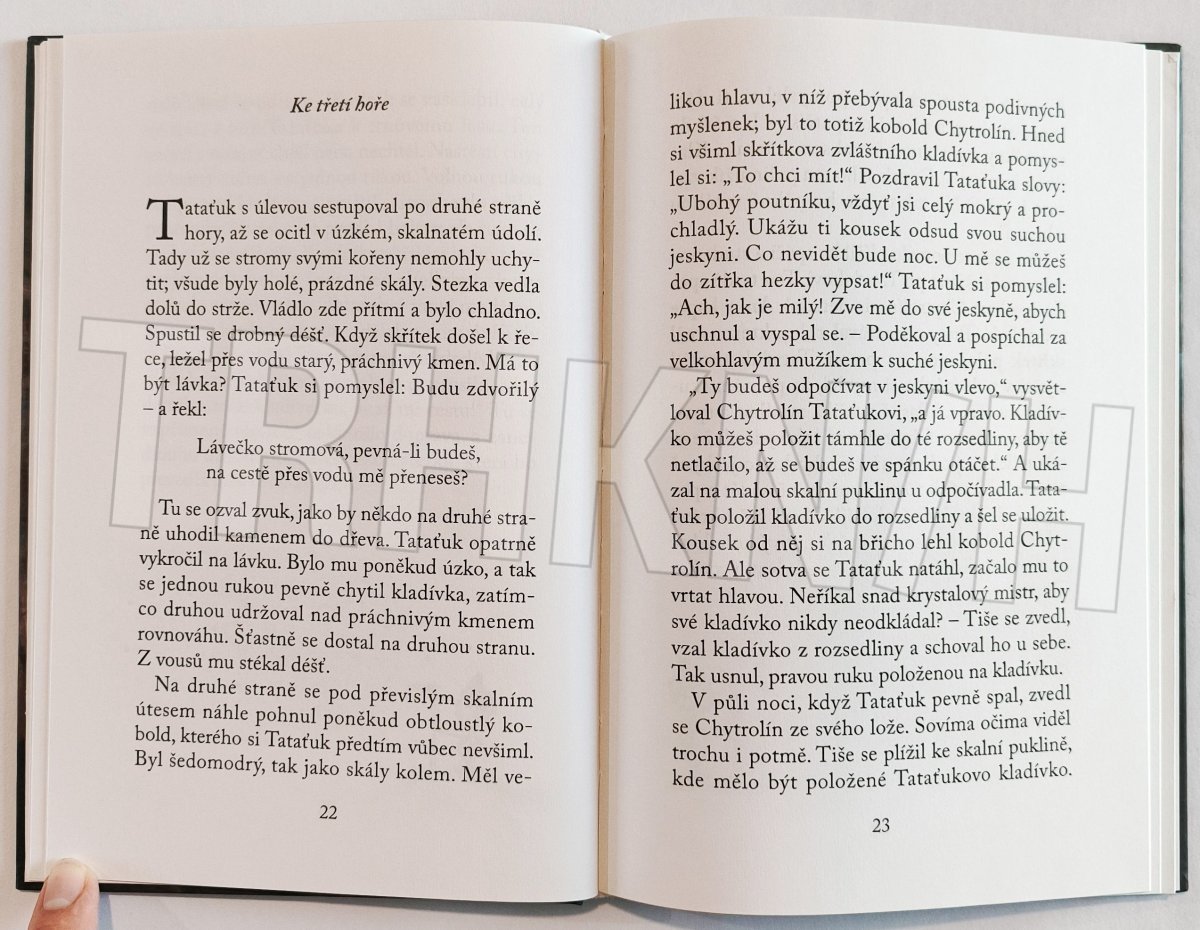 Ke třetí hoře
Tataťuk s úlevou sestupoval po druhé straně
hory, až se ocitl v úzkém, skalnatém údolí.
Tady už se stromy svými kořeny nemohly uchy-
tit; všude byly holé, prázdné skály. Stezka vedla
dolů do strže. Vládlo zde přítmí a bylo chladno.
Spustil se drobný déšť. Když skřítek došel k ře-
ce, ležel přes vodu starý, práchnivý kmen. Má to
být lávka? Tataťuk si pomyslel: Budu zdvořilý
– a řekl:
Lávečko stromová, pevná-li budeš,
na cestě přes vodu mě přeneseš?
Tu se ozval zvuk, jako by někdo na druhé stra-
ně uhodil kamenem do dřeva. Tataťuk opatrně
vykročil na lávku. Bylo mu poněkud úzko, a tak
se jednou rukou pevně chytil kladívka, zatím-
co druhou udržoval nad práchnivým kmenem
rovnováhu. Šťastně se dostal na druhou stranu.
Z vousů mu stékal déšť.
Na druhé straně se pod převislým skalním
útesem náhle pohnul poněkud obtloustlý ko-
bold, kterého si Tataťuk předtím vůbec nevšiml.
Byl šedomodrý, tak jako skály kolem. Měl ve-
22
likou hlavu, v níž přebývala spousta podivných
myšlenek; byl to totiž kobold Chytrolín. Hned
si všiml skřítkova zvláštního kladívka a pomys-
lel si: „To chci mít!“ Pozdravil Tataťuka slovy:
„Ubohý poutníku, vždyť jsi celý mokrý a pro-
chladlý. Ukážu ti kousek odsud svou suchou
jeskyni. Co nevidět bude noc. U mě se můžeš
do zítřka hezky vypsat!“ Tataťuk si pomyslel:
„Ach, jak je milý! Zve mě do své jeskyně, abych
uschnul a vyspal se. – Poděkoval a pospíchal za
velkohlavým mužíkem k suché jeskyni.
„Ty budeš odpočívat v jeskyni vlevo,“ vysvět-
loval Chytrolín Tataťukovi, „a já vpravo. Kladív-
ko můžeš položit támhle do té rozsedliny, aby tě
netlačilo, až se budeš ve spánku otáčet.“ A uká-
zal na malou skalní puklinu u odpočívadla. Tata-
ťuk položil kladívko do rozsedliny a šel se uložit.
Kousek od něj si na břicho lehl kobold Chyt-
rolín. Ale sotva se Tataťuk natáhl, začalo mu to
vrtat hlavou. Neříkal snad krystalový mistr, aby
své kladívko nikdy neodkládal? – Tiše se zvedl,
vzal kladívko z rozsedliny a schoval ho u sebe.
Tak usnul, pravou ruku položenou na kladívku.
V půli noci, když Tataťuk pevně spal, zvedl
se Chytrolín ze svého lože. Sovíma očima viděl
trochu i potmě. Tiše se plížil ke skalní puklině,
kde mělo být položené Tataťukovo kladívko.
23
TRHKNIH